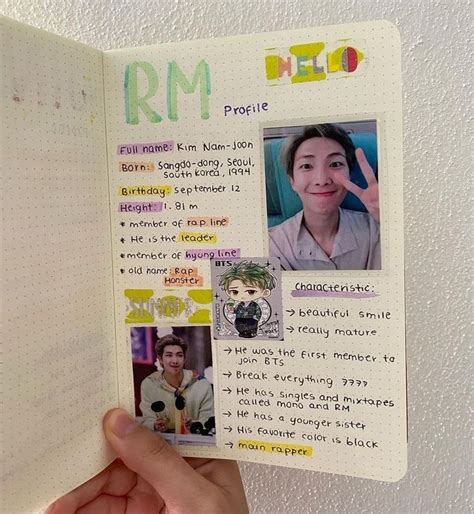 HELLO
RM
Profile
Full name: Kim Nam-joon
Born: Sangdo-dong, Seoul,
South Korea, 1994
Birthday: September 12
Height: 1.81 m
* member of rap line
* He is the leader
* member of hyung line
* old name: Rap
Monster
BTS
characteristic:
→ beautiful smile
→ really mature
→ He was the first member to
join BTS
→ Break everything ????
→ He has singles and mixtapes
called mono and RM
→ He has a younger sister
→ His favorite color is black
→ main rapper